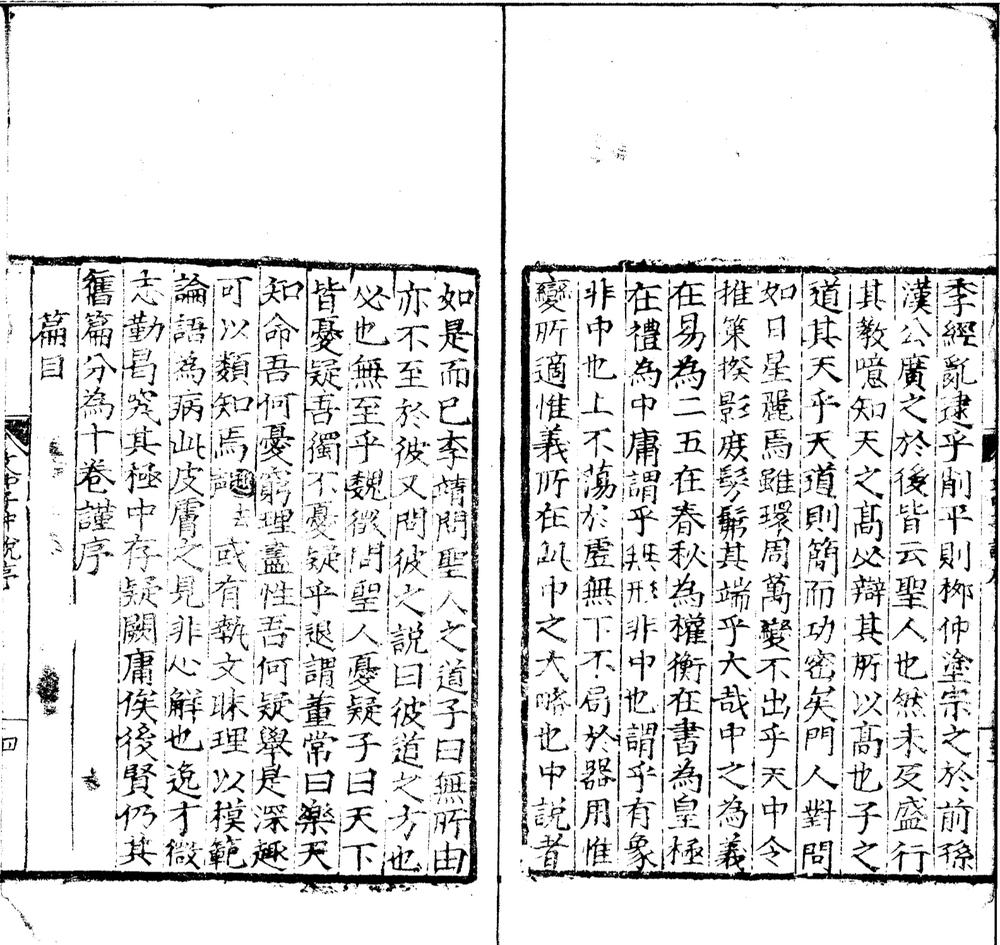 季經亂逮乎削平則栁仲塗宗之於前孫
漢公廣之於後皆云聖人也然未及盛行
其敎噫知天之髙必辯其所以髙也子之
道其天乎天道則簡而功密矣門人對問
如日星麗焉雖環周萬變不出乎天中今
推策揆影庶髣髴其端乎大哉中之為義
在易為二五在春秋為權衡在書為皇極
在禮為中庸謂乎無形非中也謂乎有象
非中也上不蕩於虛無下不局於器用惟
變所適惟義所在此中之大略也中説者
如是而已李靖問聖人之道子曰無所由
亦不至於彼又問彼之説曰彼道之方也
必也無至乎魏徵問聖人憂疑子曰天下
皆憂疑吾獨不憂疑乎退謂董常曰樂天
知命吾何憂窮理盡性吾何疑舉是深趣
可以類知焉或有執文昧理以模範
論語為病此皮膚之見非心解也逸才微
志勤曷究其極中存疑闕庸俟後賢仍其
舊篇分為十卷謹序
篇目
文中子中說序
四